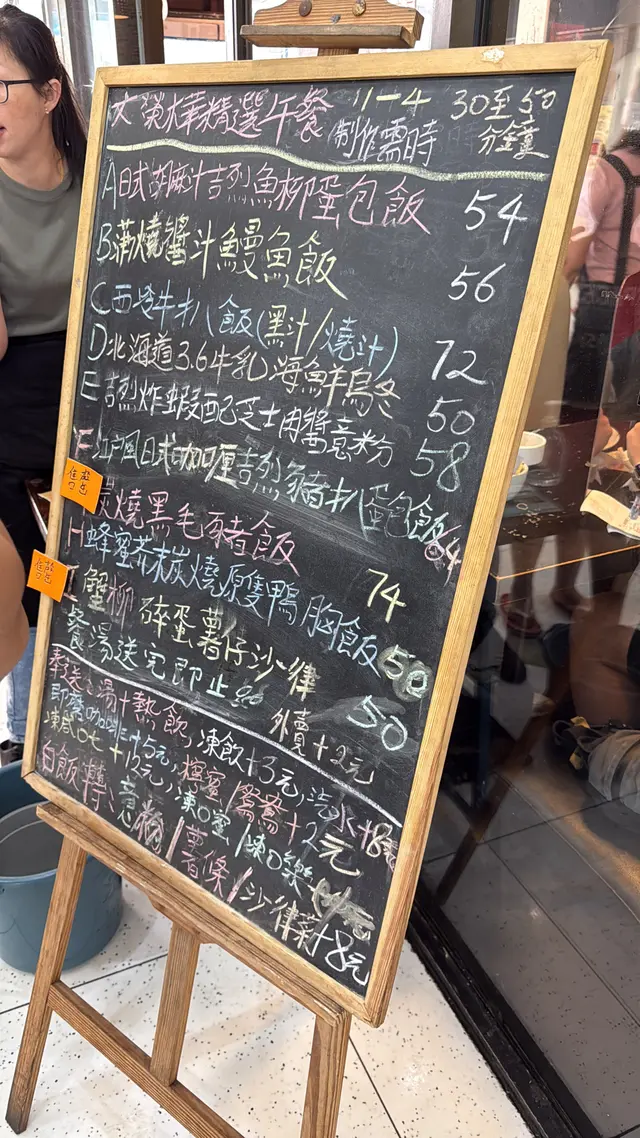 大榮華精選午餐 11-4 30至50分鐘
制作需時
A日式胡麻汁吉烈魚柳蛋包飯 54
B蒲燒醬汁鰻魚飯 56
C西冷牛扒飯(黑汁/燒汁) 72
D北海道3.6牛乳海鮮烏冬 50
E吉烈炸蝦配芝士肉醬意粉 58
F江戶風日式咖喱吉烈豬扒蛋包飯 64
炭燒黑毛豬飯 74
H蜂蜜芥末炭燒原隻鴨胸飯 50
I蟹柳碎蛋薯仔沙律 50
餐湯送完即止 外賣+2元
湯+熱飲,凍飲+3元,汽水+8元
即磨咖啡+5元,檸蜜/鴛鴦+2元
+12元,凍
白飯轉:意粉/薯條/沙律菜+8元
售罄
售罄